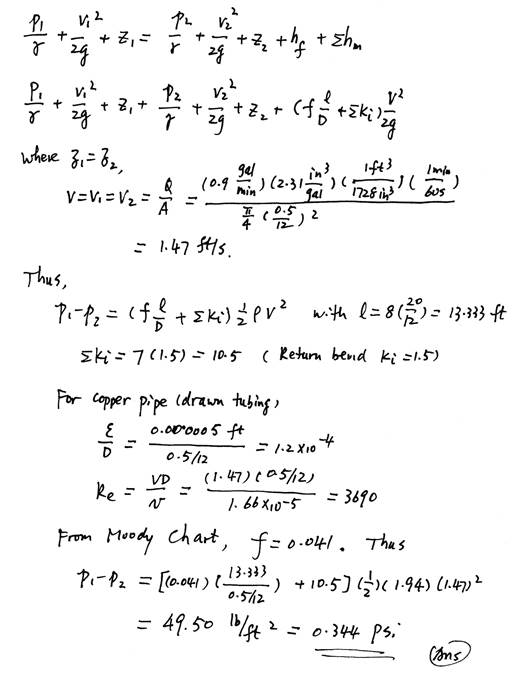 P₁/γ + V₁²/2g + z₁ = P₂/γ + V₂²/2g + z₂ + h_f + Σh_m
P₁/γ + V₁²/2g + z₁ + P₂/γ + V₂²/2g + z₂ + (f l/D + Σki) V²/2g
where z₁=z₂,
V=V₁=V₂ = Q/A = (0.9 gal/min)(2.31 in³/gal)(1ft³/1728in³)(1min/60s) / π/4 (0.5/12)²
= 1.47 ft/s.
Thus,
P₁-P₂ = (f l/D + Σki) ½ρV² with l = 8(20/12) = 13.333 ft
Σki = 7(1.5) = 10.5 (Return bend ki =1.5)
For copper pipe (drawn tubing)
ε/D = 0.000005 ft / 0.5/12 = 1.2×10⁻⁴
Re = VD/ν = (1.47)(0.5/12) / 1.66×10⁻⁵ = 3690
From Moody Chart, f=0.041. Thus
P₁-P₂ = [(0.041)(13.333 / 0.5/12) + 10.5](½)(1.94)(1.47)²
= 49.50 lb/ft² = 0.344 psi
Ans